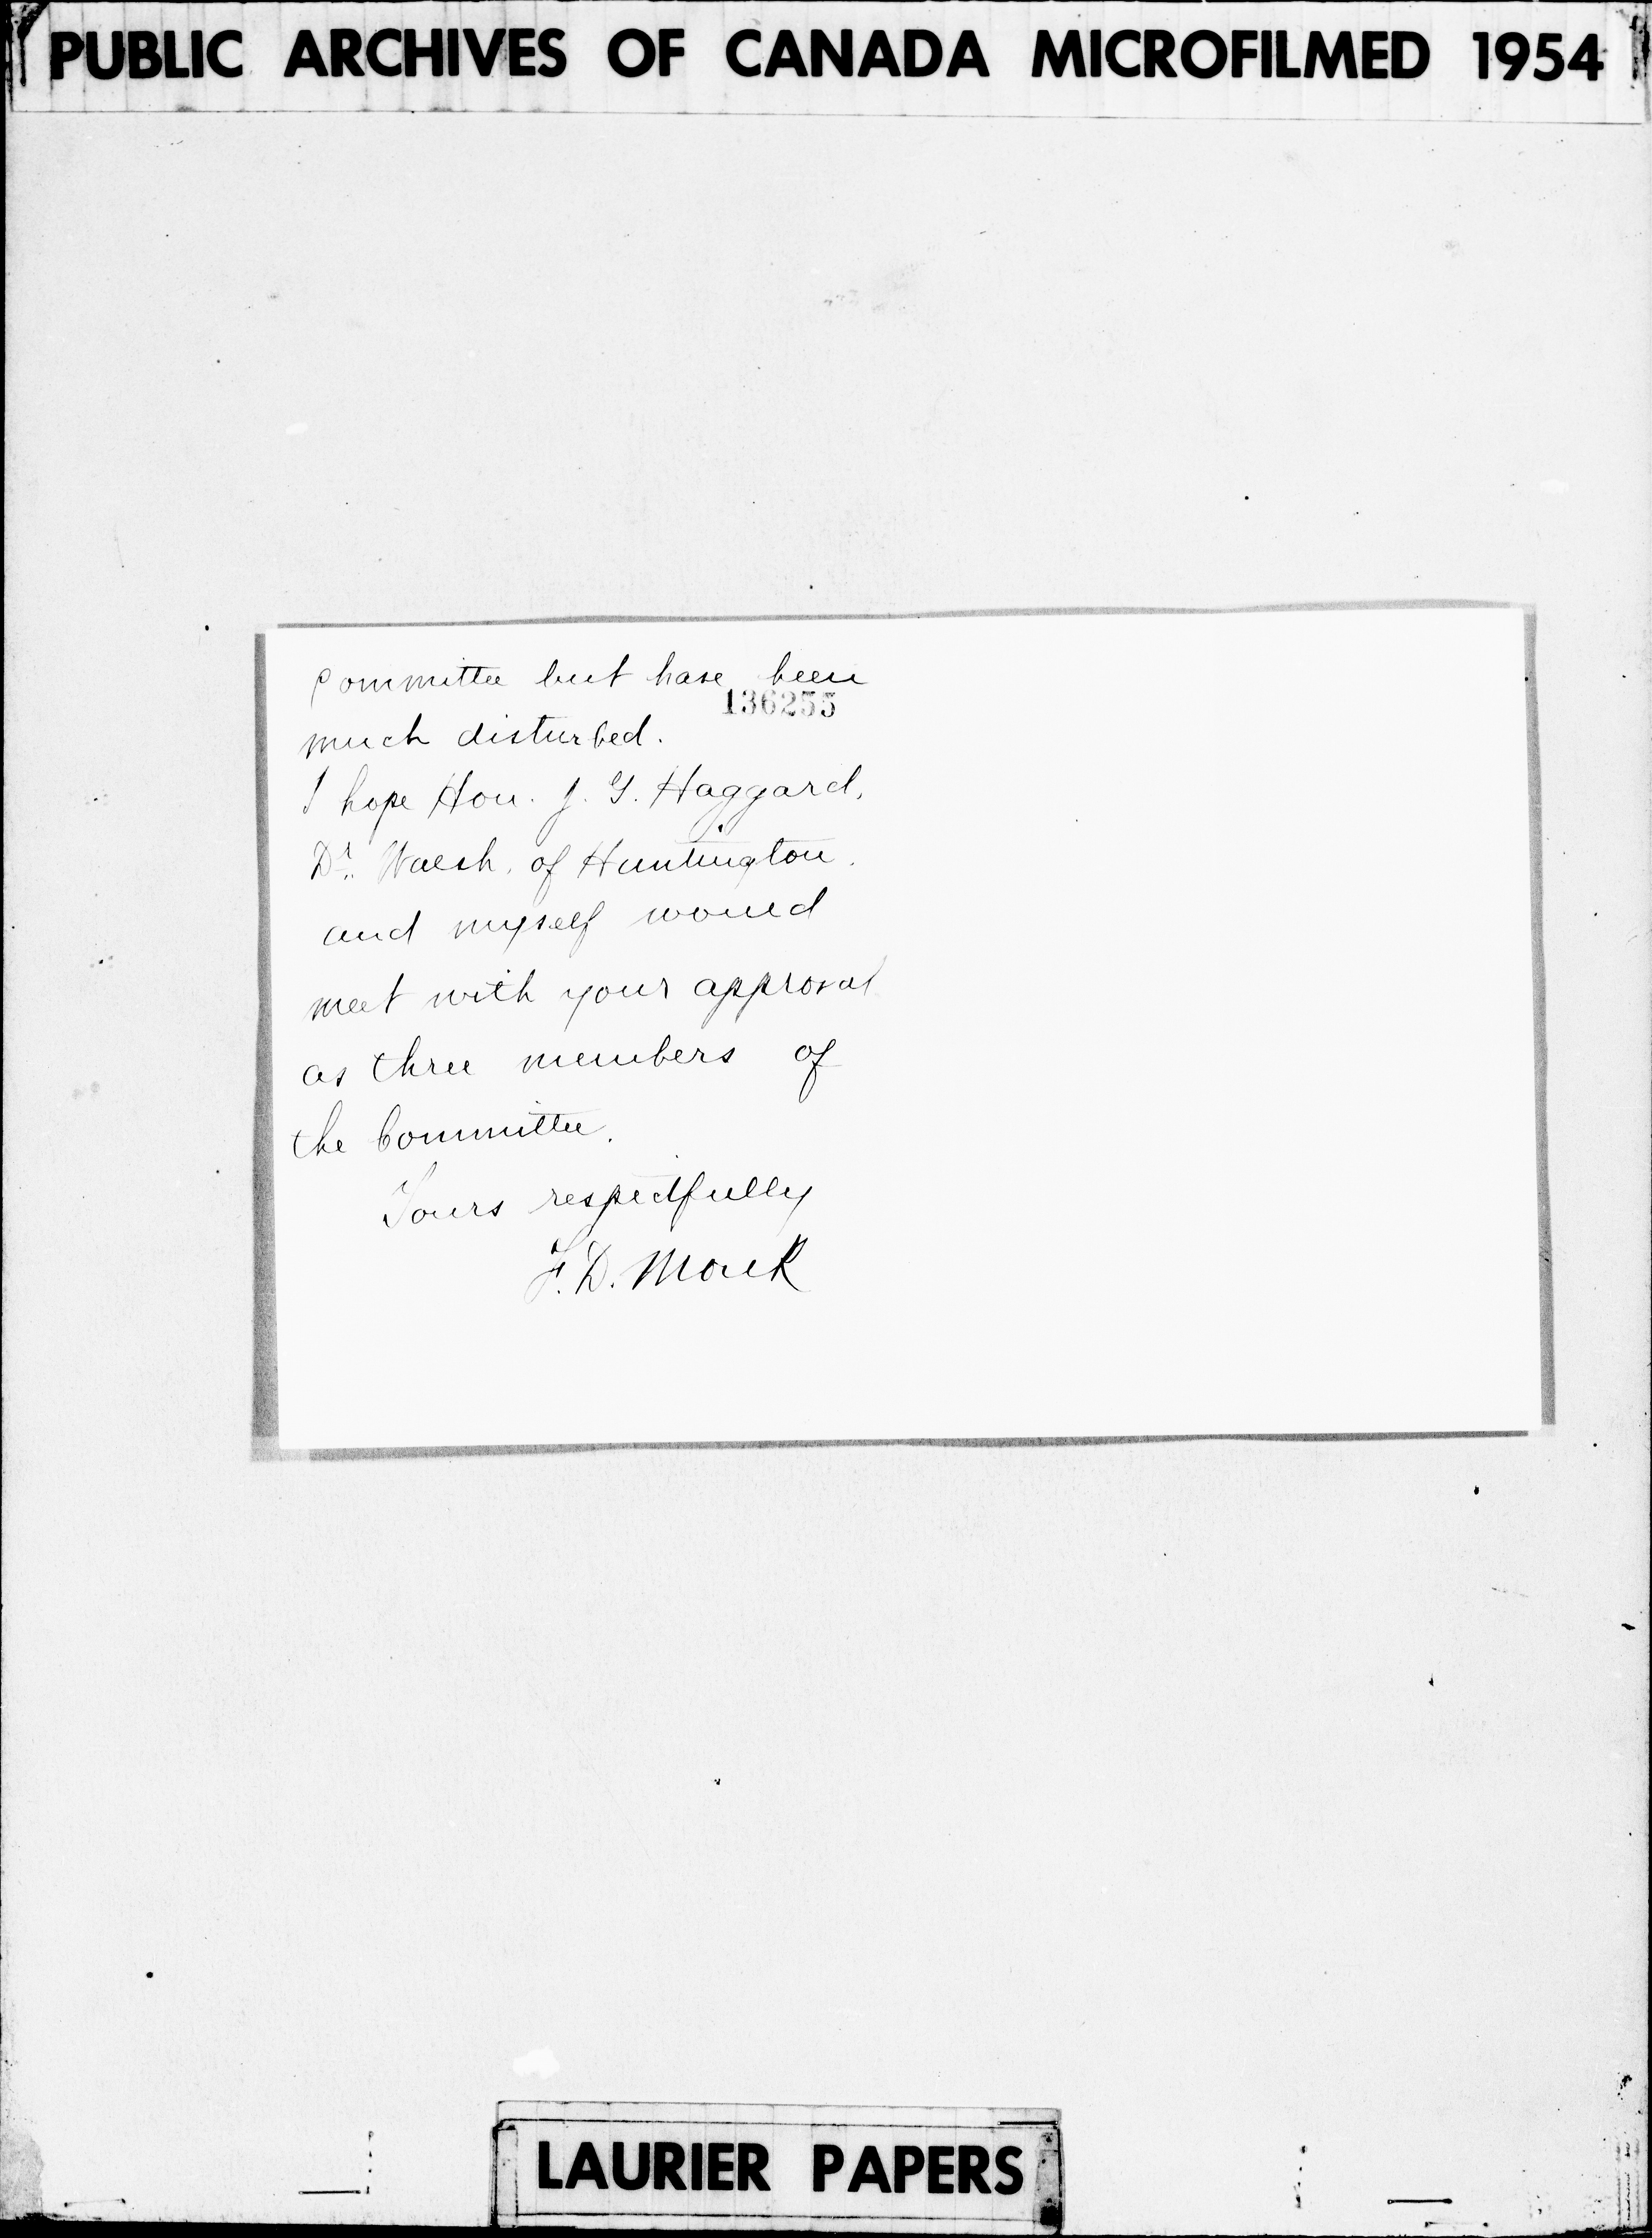 PUBLIC ARCHIVES OF CANADA MICROFILMED 1954
Committee but have been
136255
much disturbed.
I hope Hon. J. G. Haggard,
Dr. Walsh, of Huntington.
and myself would
meet with your approval
as three members of
the Committee.
Yours respectfully
F. D. Monk
LAURIER PAPERS